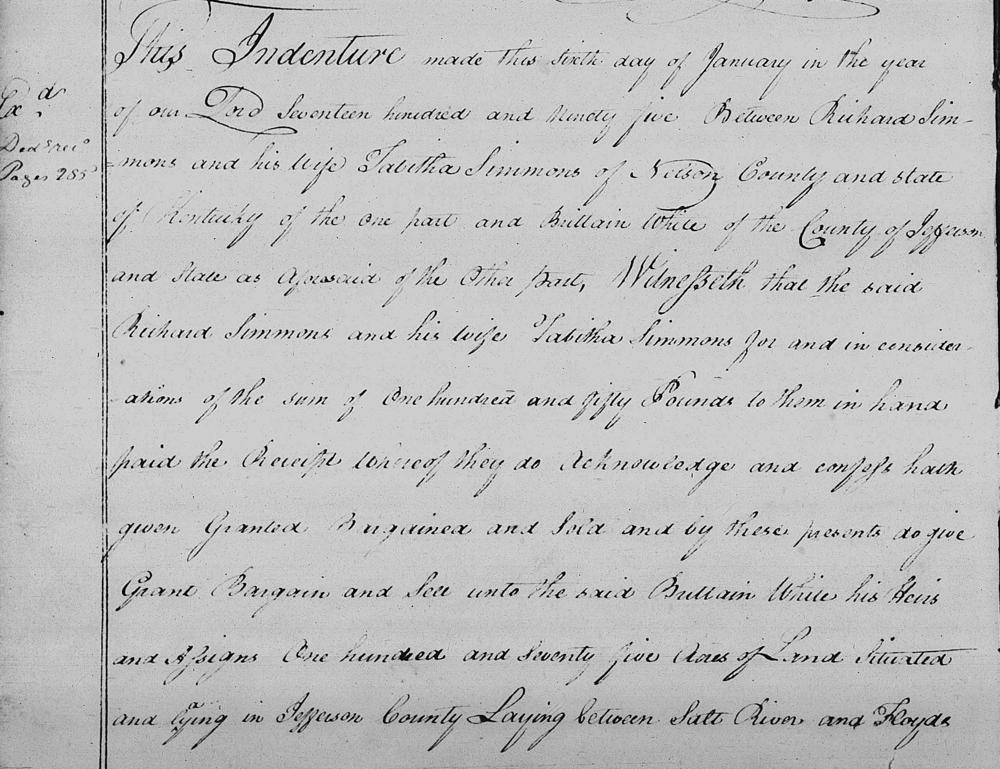 This Indenture made this sixth day of January in the year
of our Lord Seventeen hundred and Ninety five Between Richard Sim-
Exd
Ded & recd
Pages 285
-mons and his wife Tabitha Simmons of Nelson County and state
of Kentucky of the one part and Brittain White of the County of Jefferson
and State as Aforesaid of the Other part, Witnesseth that the said
Richard Simmons and his wife Tabitha Simmons for and in consider-
-ations of the sum of One hundred and fifty Pounds to them in hand
paid the Receipt whereof they do Acknowledge and confess hath
given Granted Bargained and Sold and by these presents do give
Grant Bargain and Sell unto the said Brittain White his Heirs
and Assigns One hundred and Seventy five Acres of Land Situated
and lying in Jefferson County Laying between Salt River and Floyds